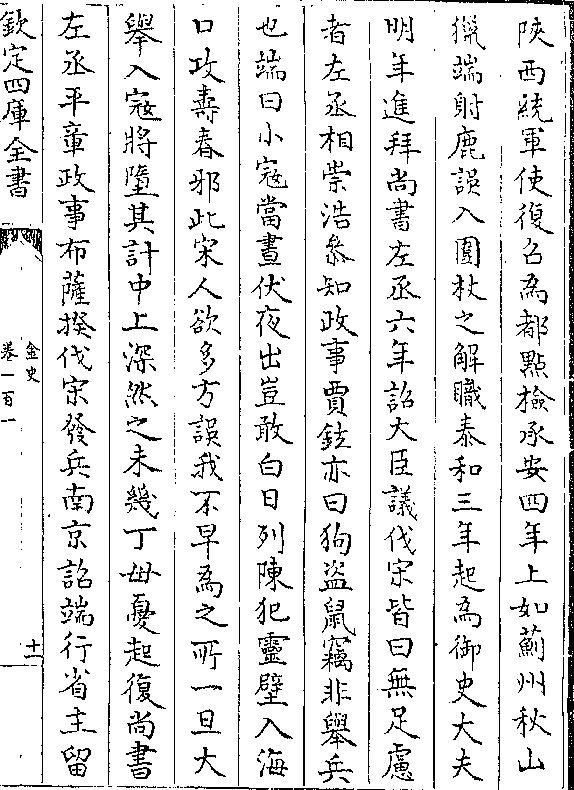 陜西統軍使復召為都點檢承安四年上如薊州秋山
獵端射鹿誤入圍杖之解職泰和三年起為御史大夫
明年進拜尚書左丞六年詔大臣議伐宋皆曰無足慮
者左丞相崇浩叅知政事賈鉉亦曰狗盗鼠竊非舉兵
也端曰小宼當晝伏夜出豈敢白日列陳犯靈壁入渦
口攻壽春邪此宋人欲多方誤我不早為之所一旦大
舉入宼將墮其計中上深然之未幾丁母憂起復尚書
左丞平章政事布薩揆伐宋發兵南京詔端行省主留
欽定四庫全書
金史
卷一百一
十一